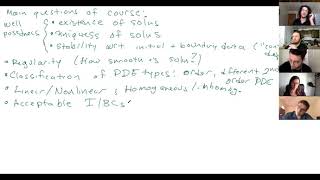 Main questions of course:
well posedness
• existence of solns
• uniqueness of solns
• Stability wrt initial + boundary data
• Regularity (How smooth is soln?)
• Classification of PDE types: order, different
order PDE
• Linear/Nonlinear & Homogeneous/inhomog.
• Acceptable I/BCs